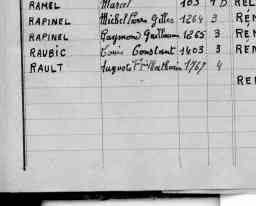 RAMEL Marcel 103 1 D REL
RAPINEL Michel Pierre Gilles 1264 3 RÉM
RAPINEL Raymond Guillaume 1265 3 RÉN
RAUBIC Louis Constant 1403 3 REN
RAULT Auguste 1767 4
REN